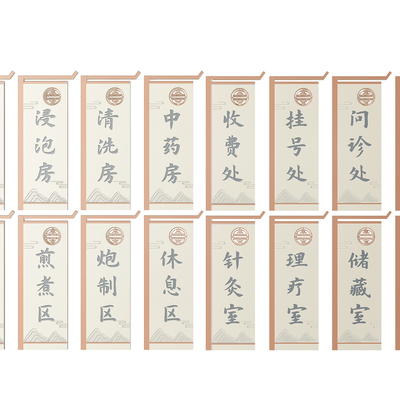 浸泡房
清洗房
中药房
收费处
挂号处
问诊处
煎煮区
炮制区
休息区
针灸室
理疗室
储藏室